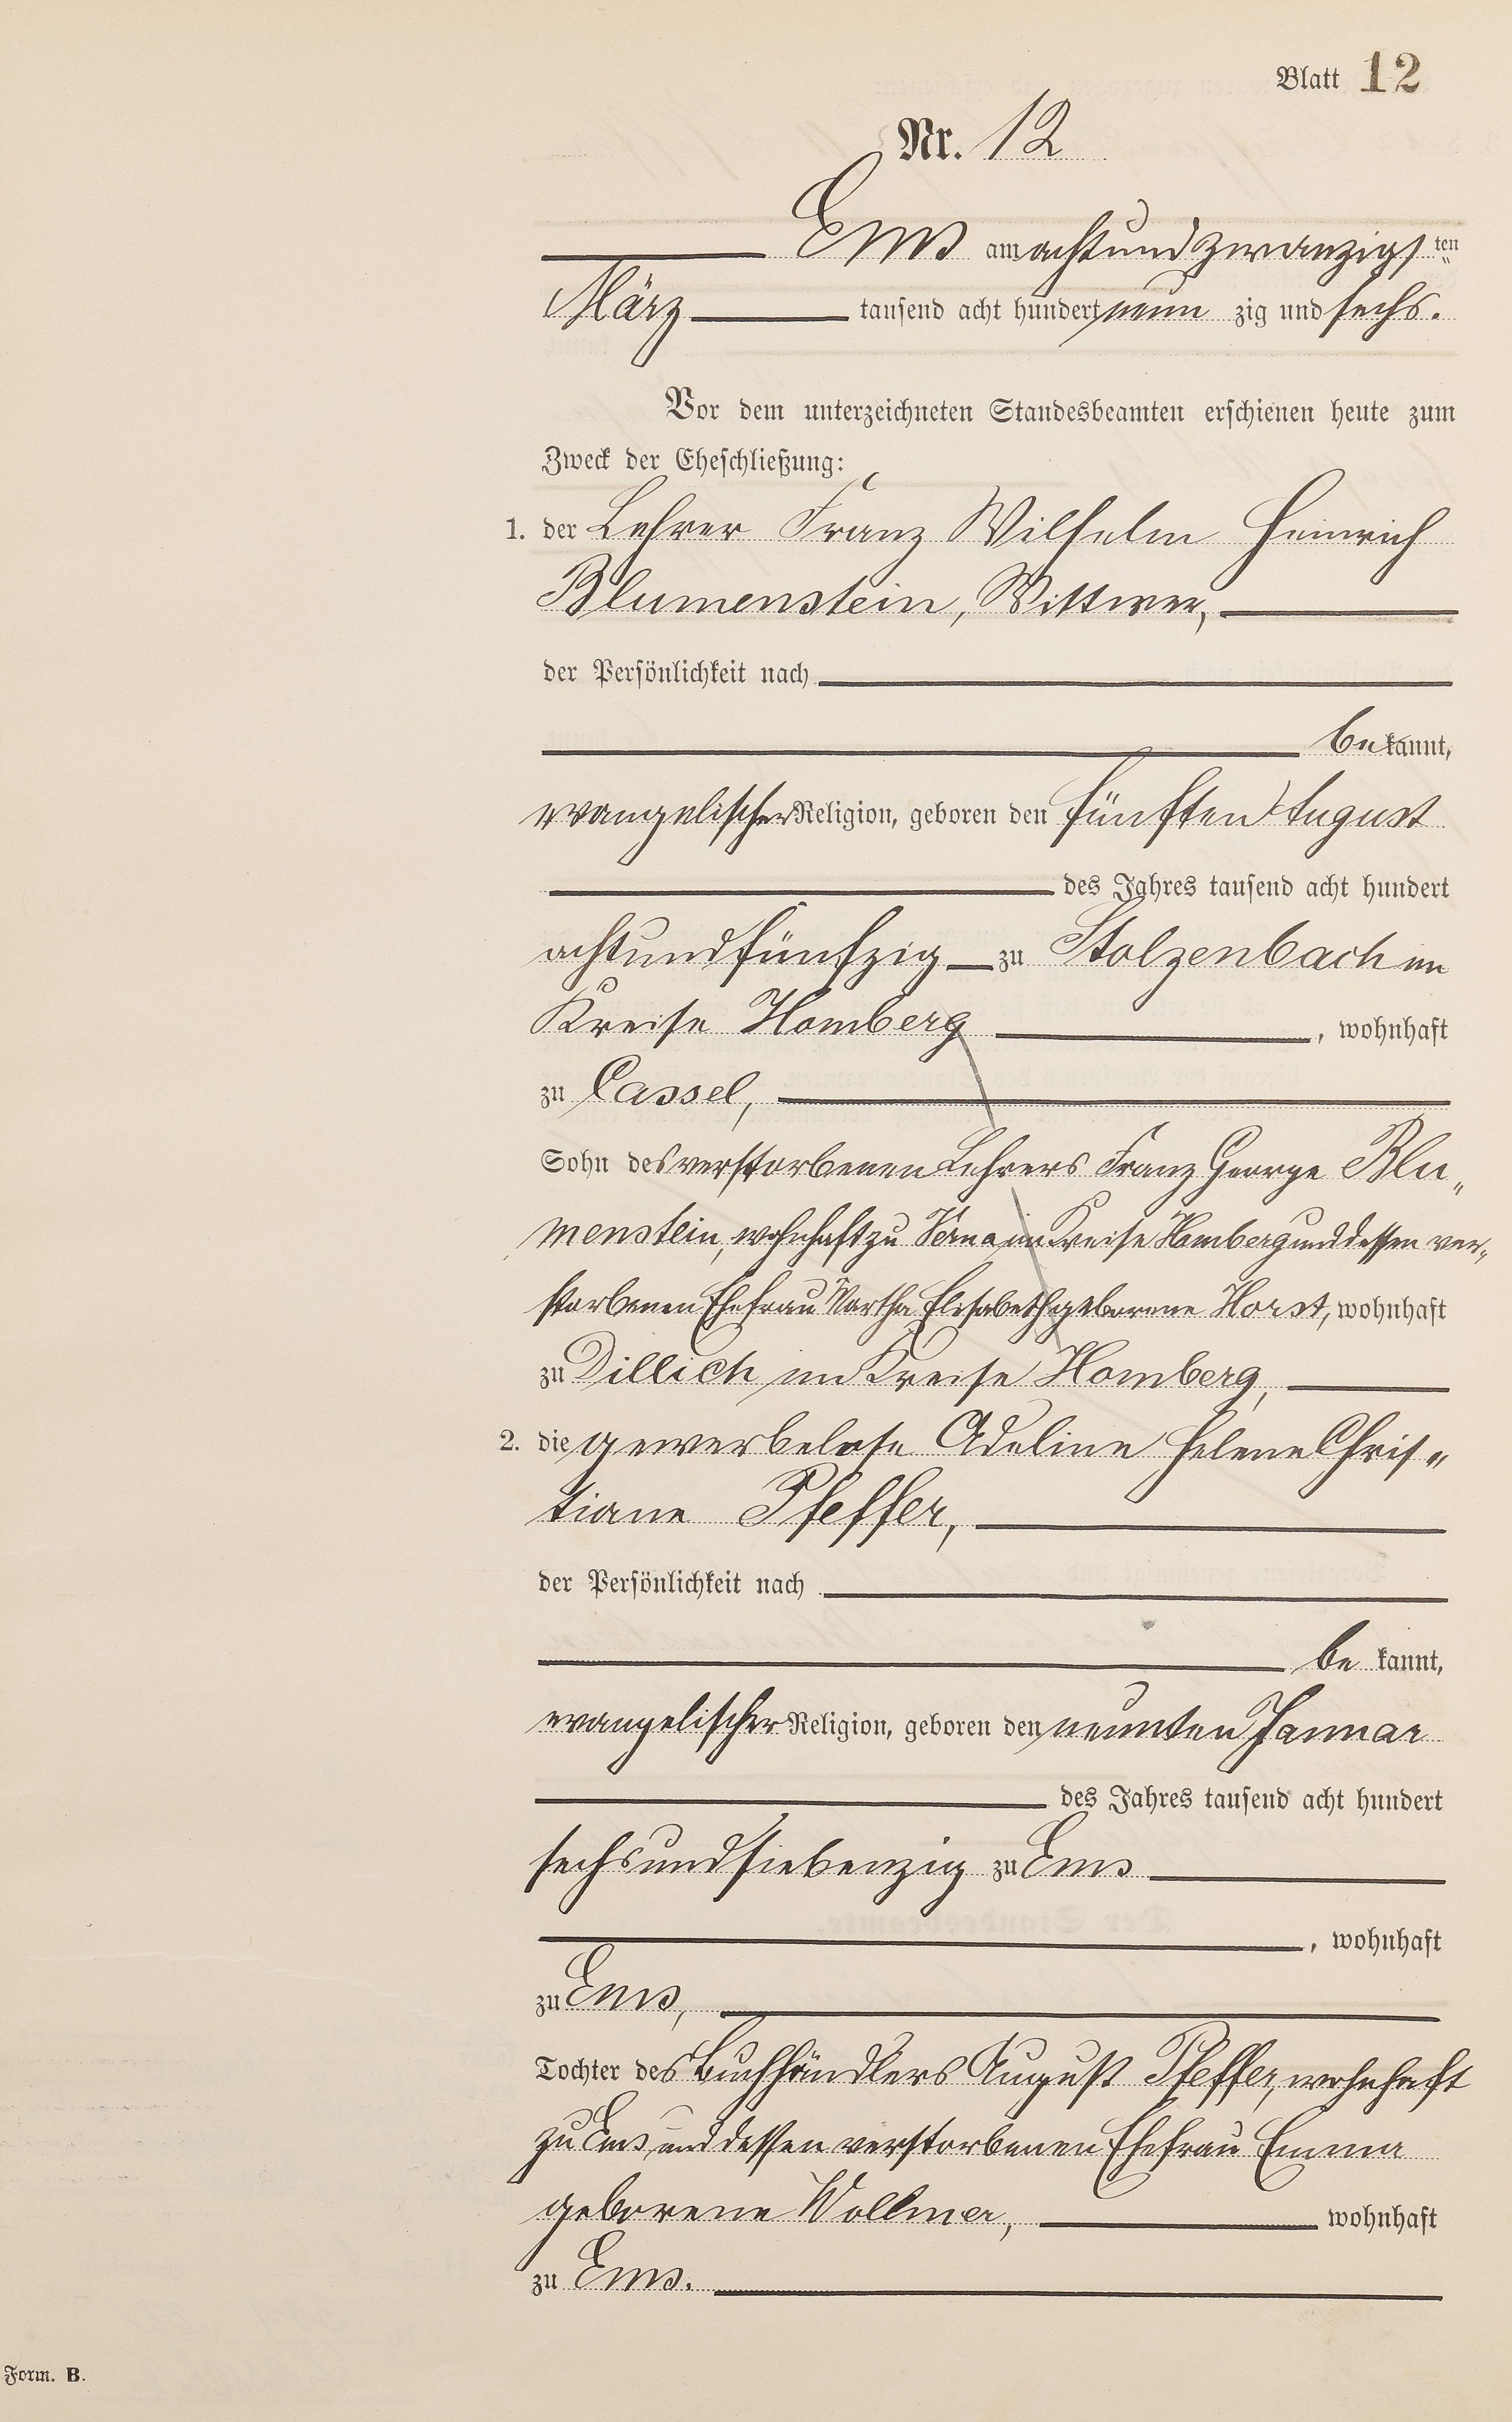 Blatt 12
Nr. 12
Ems am achtundzwanzigsten
März tausend acht hundert neunzig und sechs.
Vor dem unterzeichneten Standesbeamten erschienen heute zum
Zweck der Eheschließung:
1. der Lehrer Franz Wilhelm Heinrich
Blumenstein, Wittwer,
der Persönlichkeit nach
bekannt,
evangelischer Religion, geboren den fünften August
des Jahres tausend acht hundert
achtundfünfzig zu Stolzenbach im
Kreise Homberg, wohnhaft
zu Cassel,
Sohn des verstorbenen Lehrers Franz George Blu„
menstein, wohnhaft zu Verna im Kreise Homberg und dessen ver„
storbenen Ehefrau Martha Elisabeth geborene Horst, wohnhaft
zu Dillich im Kreise Homberg,
2. die gewerbelose Adeline Helene Chris„
tiane Pfeffer,
der Persönlichkeit nach
bekannt,
evangelischer Religion, geboren den neunten Januar
des Jahres tausend acht hundert
sechsundsiebenzig zu Ems
, wohnhaft
zu Ems,
Tochter des Buchhändlers August Pfeffer, wohnhaft
zu Ems und dessen verstorbenen Ehefrau Emma
geborene Vollmer, wohnhaft
zu Ems.
Form. B.